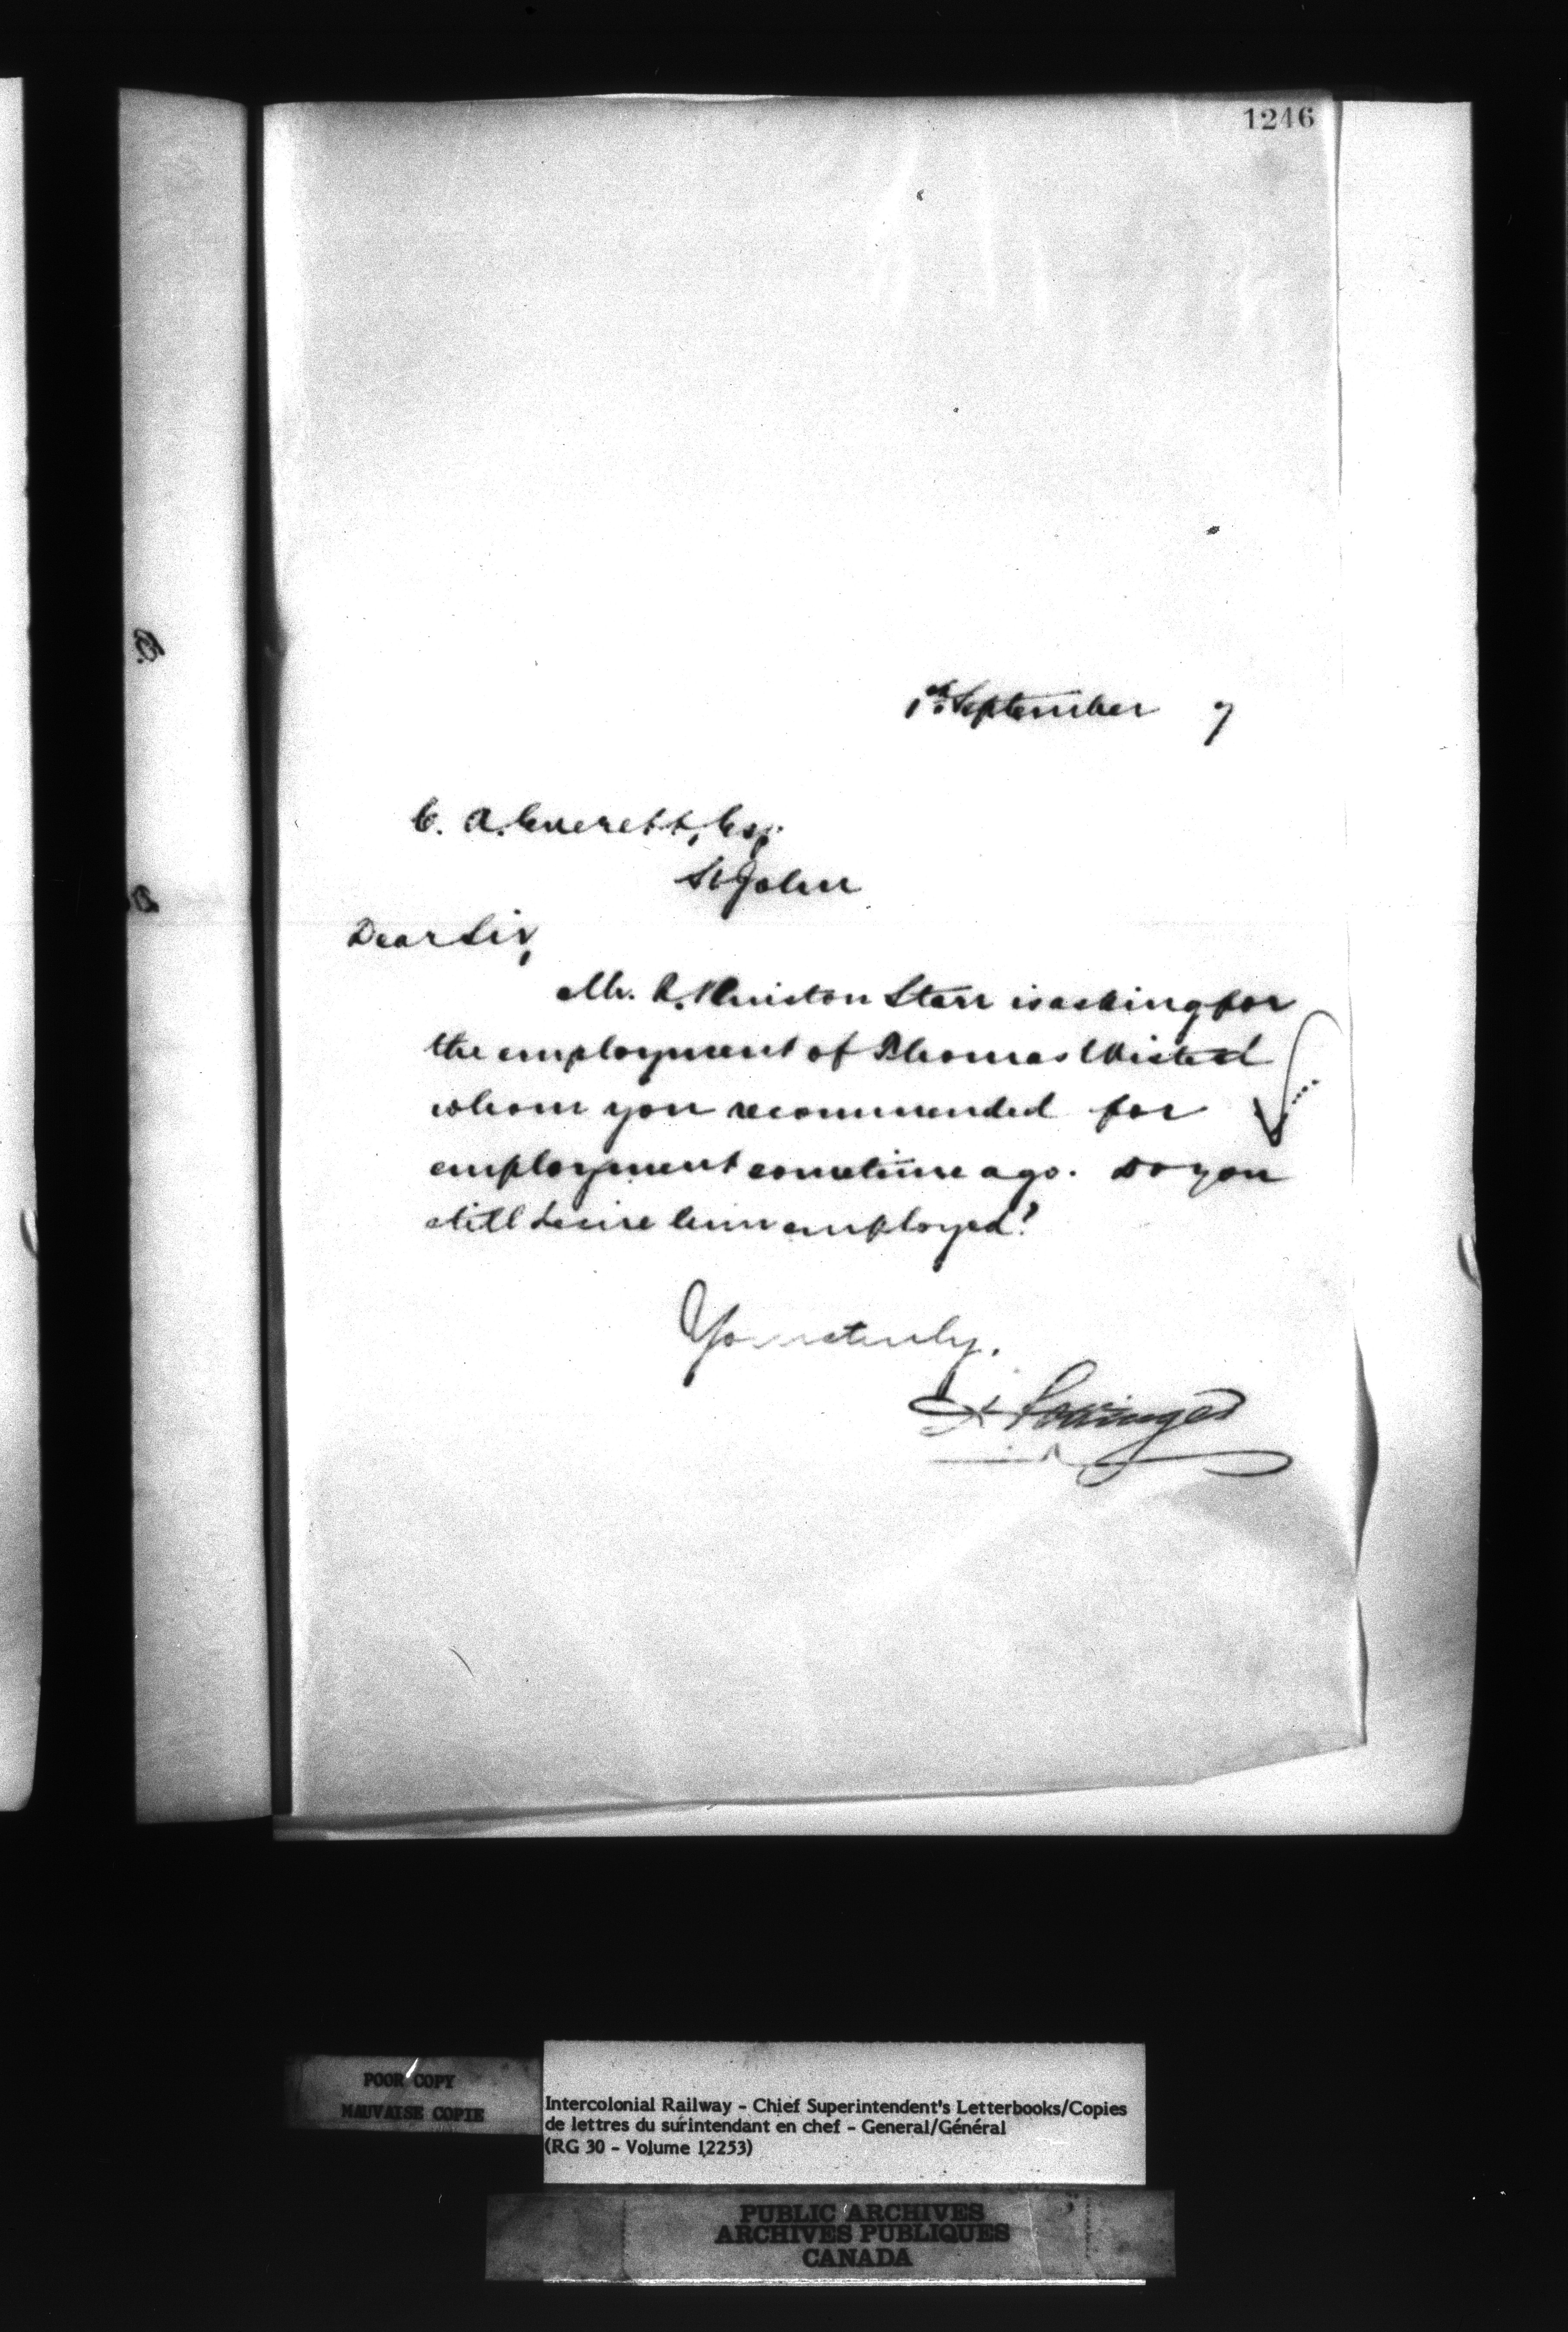 1246
1st September 7
C. A. Everett, Esq.
St John
Dear Sir,
Mr. R. Cruiston Starr is asking for
the employment of Thomas Wisted
whom you recommended for
employment sometime ago. Do you
still desire him employed?
Yours truly,
D. Pottinger
POOR COPY
MAUVAISE COPIE
Intercolonial Railway - Chief Superintendent's Letterbooks/Copies
de lettres du surintendant en chef - General/Général
(RG 30 - Volume 12253)
PUBLIC ARCHIVES
ARCHIVES PUBLIQUES
CANADA